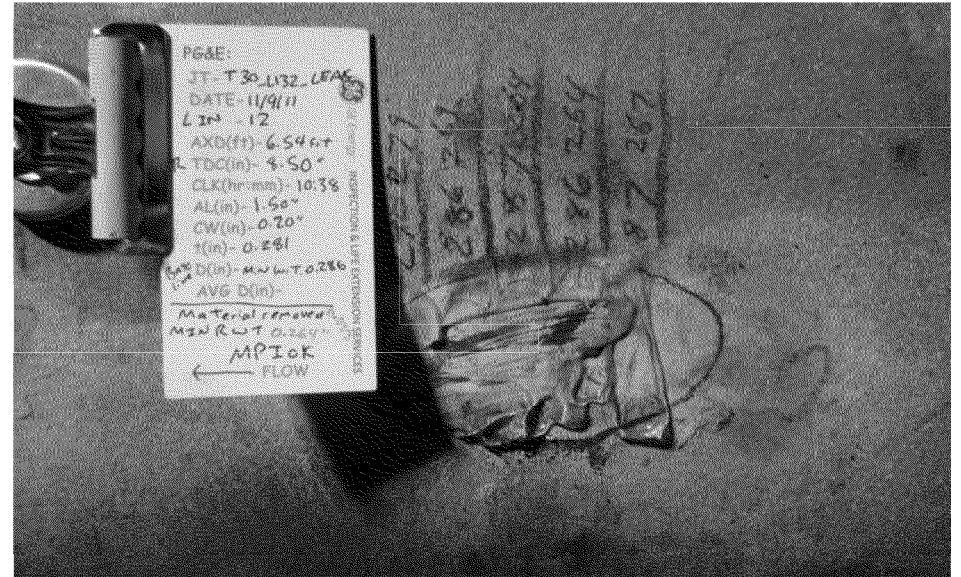 PG&E:
JT- T30_L132_LEAK
DATE- 11/9/11
LIN - 12
AXD(ft)- 6.54 FT
TDC(in)- 8.50"
CLK(hr:mm)- 10:38
AL(in)- 1.50"
CW(in)- 0.20"
t(in)- 0.281
D(in)- MN WT 0.286
AVG D(in)-
Material removed
MIN RWT 0.264"
MPI OK
← FLOW
INSPECTION & LIFE EXTENSION SERVICES
286 264
87 267